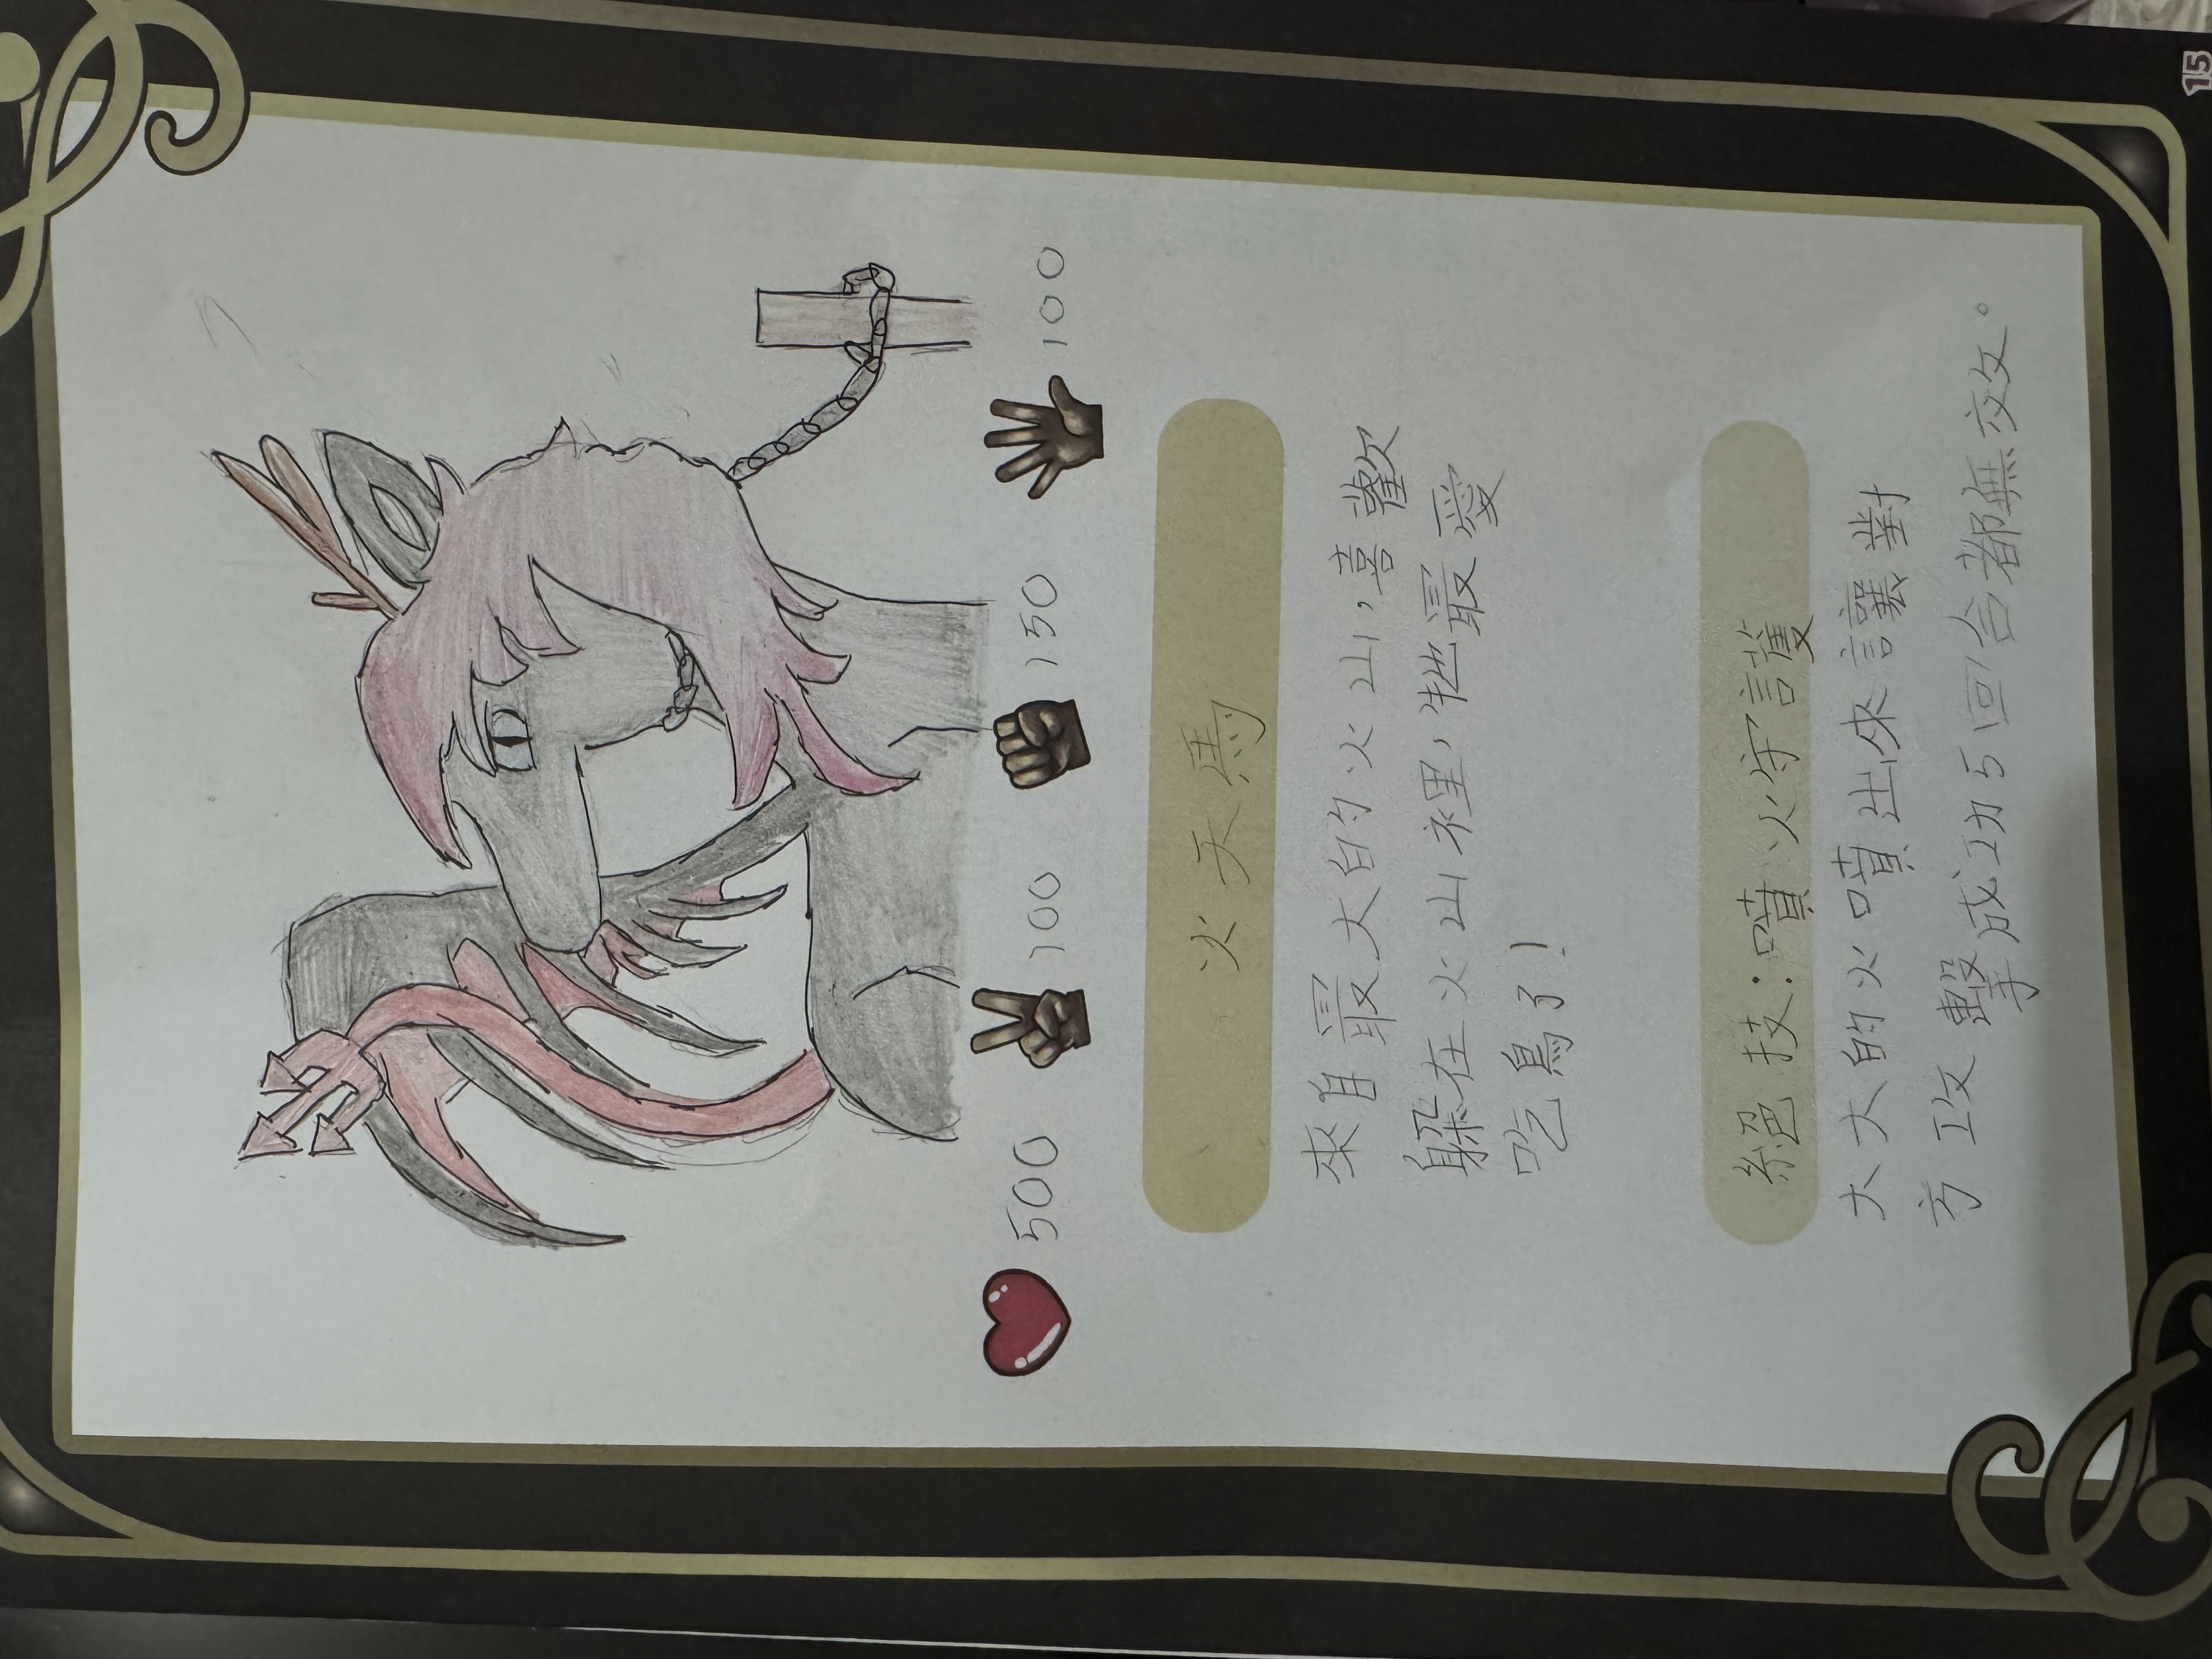 15
500 100 150 100
火天馬
來自最大的火山,喜歡
躲在火山裡,牠最愛
吃鳥了!
絕技:噴火守護
大大的火噴出來讓對
方攻擊成功5回合都無效。